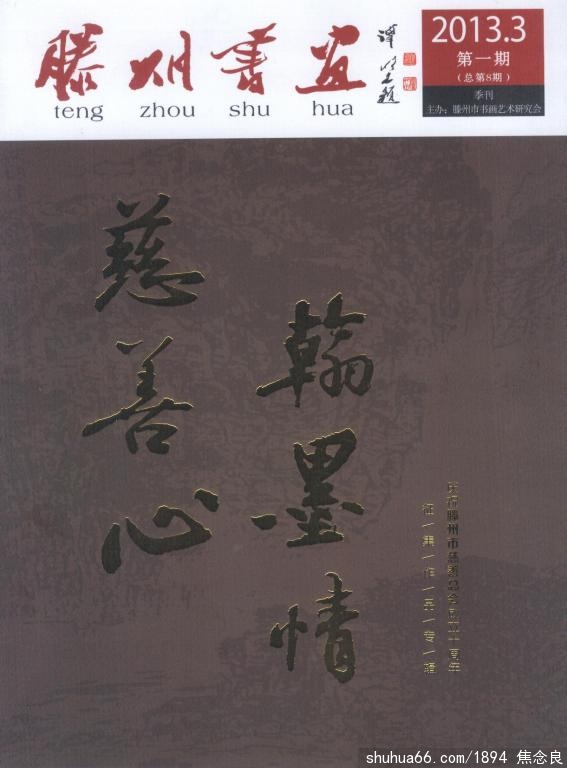 滕州書画
teng zhou shu hua
2013.3
第一期
（总第8期）
季刊
主办：滕州市书画艺术研究会
慈善心
翰墨情
庆祝滕州市慈善总会成立十周年
征/集/作/品/专/辑
shuhua66.com/1894 焦念良